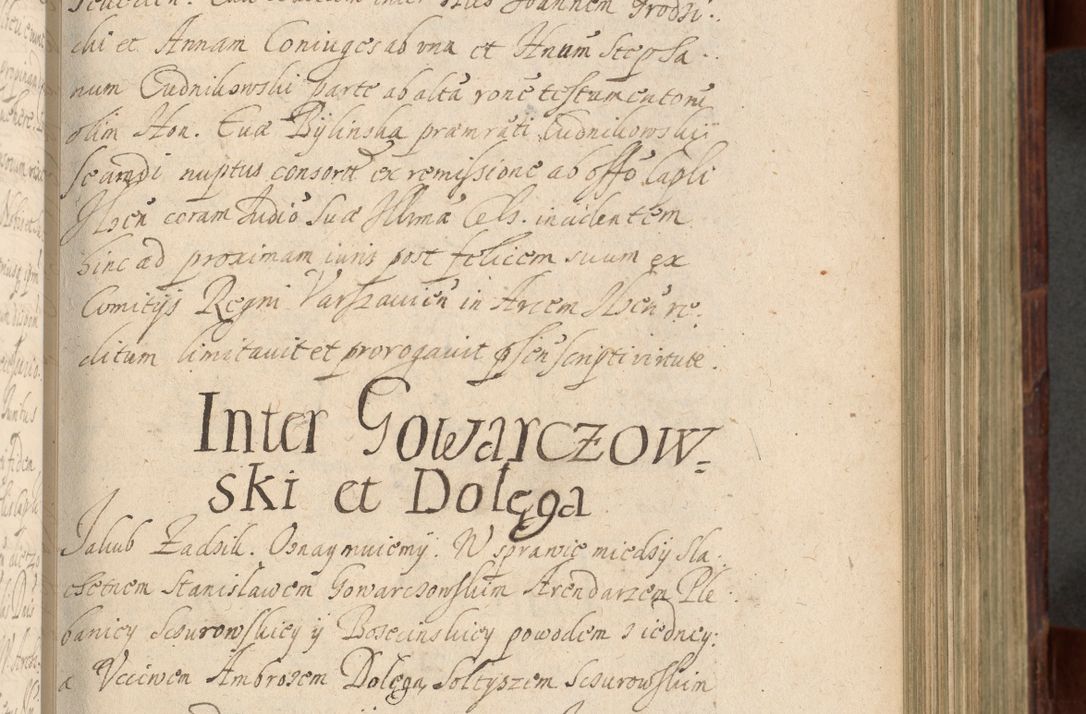 chi et Annam Coniuges ab vna et Hnum Stepha
num Cudnikowski parte ab alta rone testamentorū
olim Hon. Euæ Bylinska præmrati Cudnikowski
secundi nuptus consorti ex remissione ab offo Capli
coram Audio Suæ Illmæ Cels. incidentem
hinc ad proximam iuris post felicem suum ex
Comitijs Regni Varszauien in Arcem re
ditum limitauit et prorogauit psen scripti virtute.
Inter Gowarczow=
ski et Dolęga
Jakub Zadzik. Oznaymuiemy. W sprawie miedzy Sla
chetnem Stanislawem Gowarczowskim Arendarzem Ple
baniey Sczurowskiey ÿ Bozecinskiey powodem z iedney
a Vcciwem Ambrozem Dolęga Soltyszem Sczurowskim